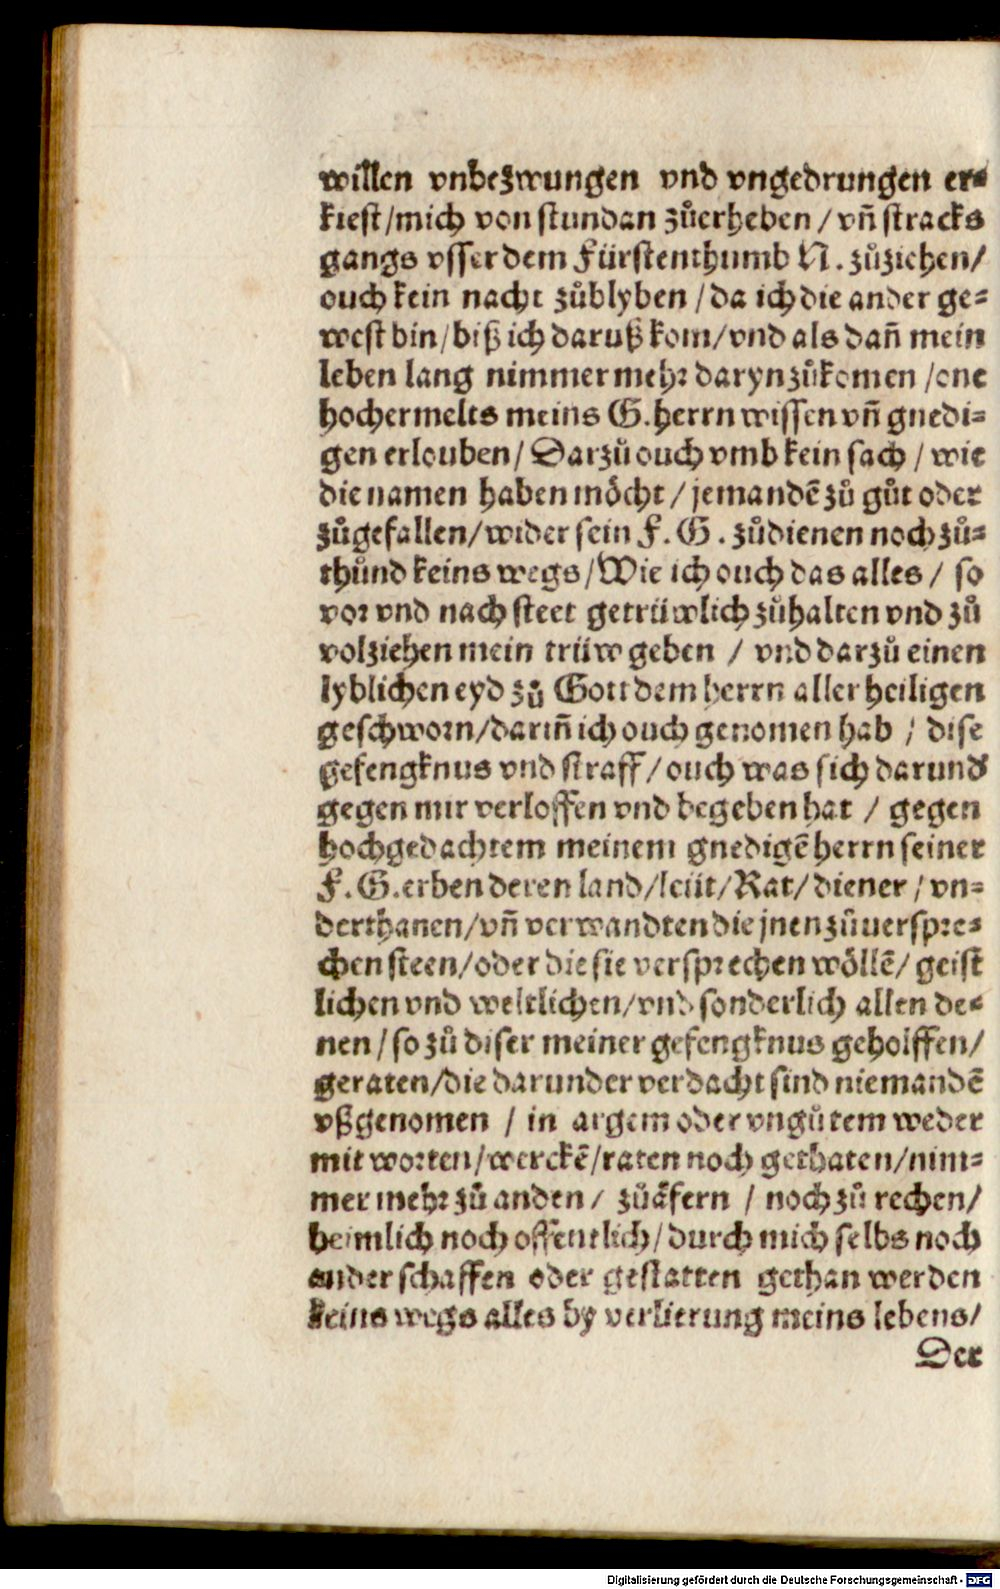 willen vnbezwungen vnd vngedrungen er⸗
kiest/mich von stundan zůerheben / vñ stracks
gangs vsser dem Fürstenthumb N. zůziehen/
ouch kein nacht zůblyben / da ich die ander ge⸗
west bin/biß ich daruß kom/vnd als dañ mein
leben lang nimmer mehr daryn zůkomen /one
hochermelts meins G.herrn wissen vñ gnedi⸗
gen erlouben/ Darzů ouch vmb kein sach / wie
die namen haben möcht / jemandẽ zů gůt oder
zůgefallen/wider sein F. G. zůdienen noch zů⸗
thůnd keins wegs/Wie ich ouch das alles / so
vor vnd nach steet getrüwlich zůhalten vnd zů
volziehen mein trüw geben / vnd darzů einen
lyblichen eyd zů Gott dem herrn aller heiligen
geschworn/dariñ ich ouch genomen hab / dise
gefengknus vnd straff / ouch was sich darund
gegen mir verloffen vnd begeben hat / gegen
hochgedachtem meinem gnedigẽ herrn seiner
F. G.erben deren land/leüt/Rat/ diener / vn⸗
derthanen/vñ verwandten die jnen zůuerspre⸗
chen steen/oder die sie versprechen wöllẽ/ geist
lichen vnd weltlichen/vnd sonderlich allen de⸗
nen / so zů diser meiner gefengknus geholffen/
geraten/die darunder verdacht sind niemandẽ
vßgenomen / in argem oder vngůtem weder
mit worten/werckẽ/raten noch gethaten/nim⸗
mer mehr zů anden / zůäfern / noch zů rechen/
heimlich noch offentlich/ durch mich selbs noch
ander schaffen oder gestatten gethan werden
keins wegs alles by verlierung meins lebens/
Der
Digitalisierung gefördert durch die Deutsche Forschungsgemeinschaft - DFG